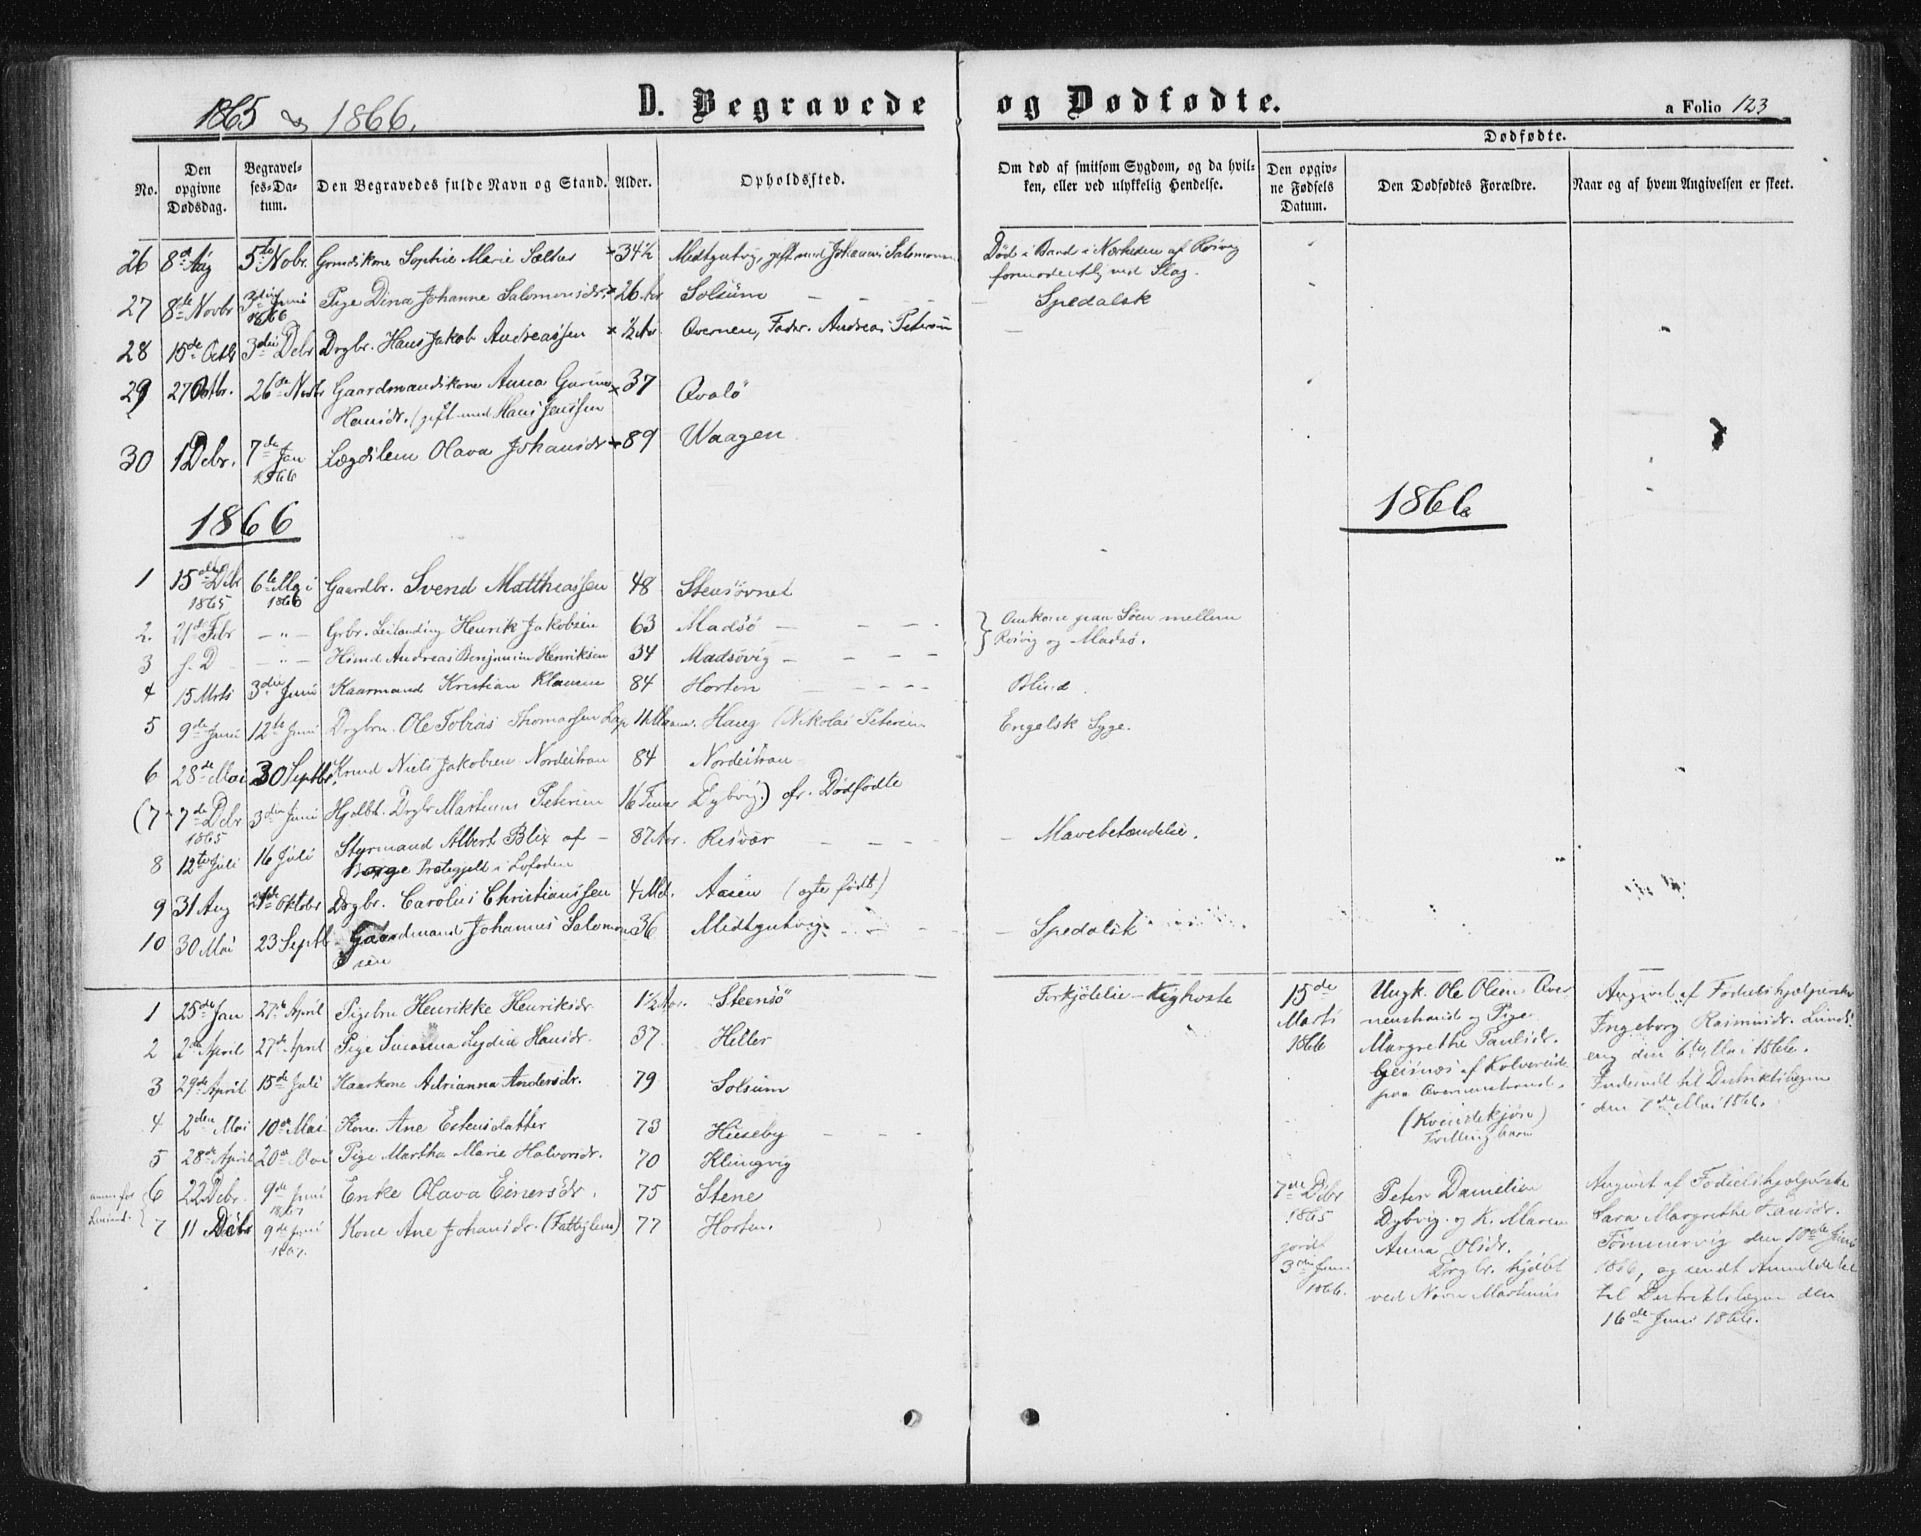 1865 & 1866.
D. Begravede og Dødfødte.
a Folio 123
No.
Den opgivne Dødsdag.
Begravelses-Datum.
Den Begravedes fulde Navn og Stand.
Alder.
Opholdssted.
Om død af smitsom Sygdom, og da hvilken, eller ved ulykkelig Hendelse.
Dødfødte.
Den opgivne Fødsels Datum.
Den Dødfødtes Forældre.
Naar og af hvem Angivelsen er skeet.
26 8de Aug 5te Nobr. Sophie Marie × 34½ gift med Johannes Død i Baad i Nærheden af Risvig
formodentlig ved Slag.
27 8de Novbr 3die Juni 1866 Pige Dina Johanne Salomonsdr. × 26 Aar Solsum — — Spedalsk
28 15de Octb 3die Debr Drgbr. Hans Jakob Andreassen × ½ Ar Overneu, Fader. Andreas Petersen
29 27 Octbr. 26de Novbr Gaardmandskone Anna × 37 Qvalø
Hansdr. (gift med Hans Jenssen
30 1 Debr. 7de Jan 1866 Lægdslem Olava Johansdr × 89 Waagen
1866 1866
1 15de Debr 1865 6te Mai 1866 Gaardbr. Svend Matthiassen 48 Steusøvnet
2. 21de Febr — " — Grbr. Leilending Henrik Jakobsen 63 Madsø — — — Omkom paa Søen mellem
Risvig og Madsø.
3 s. D — " — Hsmd Andreas Benjamin Henriksen 34 Madsøvig — — — —
4 15 Mrts 3die Juni Kaarmand Kristian Klausen 84 Horten — — — — Blind.
5 9de Juni 12te Juni Drgbrn. Ole Tobias Thomassen Lap 11 Maan. Haug (Nikolai Petersen Engelsk Syge.
6 28de Mai 30 Septbr. Niels Jakobsen Nordeitran 84 Nordeitran
(7 7de Debr 1865 3die Juni Hjdbt. Drgbr Martinus Petersen 16 Timer Dybvig.) cfr. Dødfødte
8 12te Juli 16 Juli Styrmand Albert Blix af — 87 Aar. Risvær — — — — Mavebetændelse.
Borge Prstegjeld i Lofoden
9 31 Aug 21de Oktobr Drgbr. Carolus Christianssen 4 Md. Aasen (ægte født)
10 30 Mai 23 Septb Gaardmand Johannes Salomon 36 — — Spedalsk
sen
1 25de Jan 27de April Pigebn Henrikke Henriksdr. 1½ Aar. Steensö Forkjølelse — Kighoste
2 2de April 27de April Pige Susanna Lydia Hansdr. 37. Heller
3 29de April 15de Juli Kaarkone Adrianna Andersdr. 79 Solsum
4 2den Mai 10de Mai Kone Ane Estensdatter 73 — —
5 28de April 20de Mai Pige Martha Marie Halvorsdr. 70 Klungvig
6 22 Debr. 9de Juni 1867 Enke Olava Einersdr. 75 Stene
7 11 Debr 9de Juni 1867. Kone Ane Johansdr. (Fattiglem) 77 Horten.
15de Marts 1866
Ungk. Ole Olsen Over
nenstrand og Pige
Margrethe Paulsdr.
Geisnæs af Kolvereid
paa Overnenstrand.
(Kvindekjøn)
Tvillingbarn
Angivet af Fødselshjælperske
Ingeborg Rasmusdr. Lunds
eng den 6te Mai 1866.
Indsendt til Distriktslægen
den 7de Mai 1866.
7de Debr 1865
jordf.
3die Juni 1866.
Peter Danielsen
Dybvig og K. Maren
Anna Olsdr.
Drgbr. hjdbt
ved Navn Martinus
Angivet af Fødselshjelperske
Sara Margrethe Hansdr.
Tømmervig den 10de Juni
1866, og sendt Anmeldelse
til Distriktslægen den
16de Juni 1866.